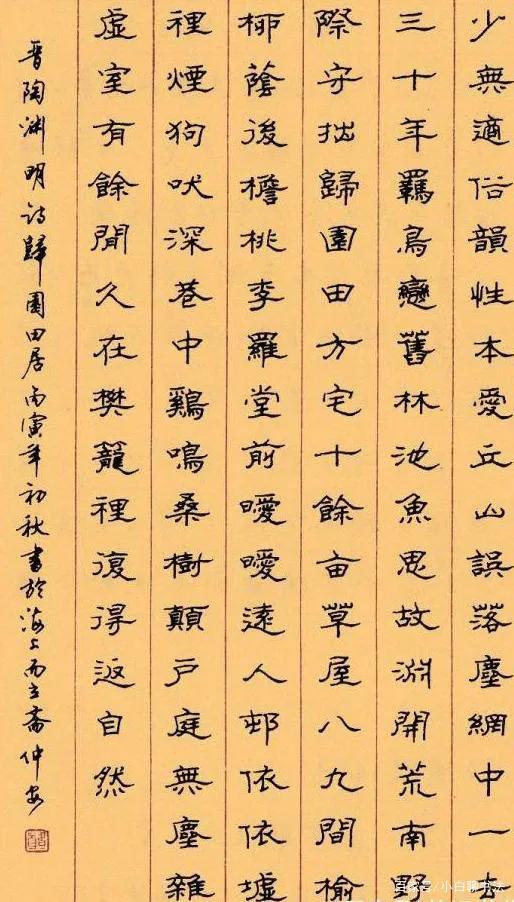 少無適俗韻性本愛丘山誤落塵網中一去
三十年羈鳥戀舊林池魚思故淵開荒南野
際守拙歸園田方宅十餘亩草屋八九間榆
柳蔭後檐桃李羅堂前曖曖遠人邨依依墟
裡煙狗吠深巷中鷄鳴桑樹顛戶庭無塵雜
虛室有餘閒久在樊籠裡復得返自然
晉陶渊明詩歸園田居丙寅年初秋書於海上而立斋仲安
百家号/小白聊书法